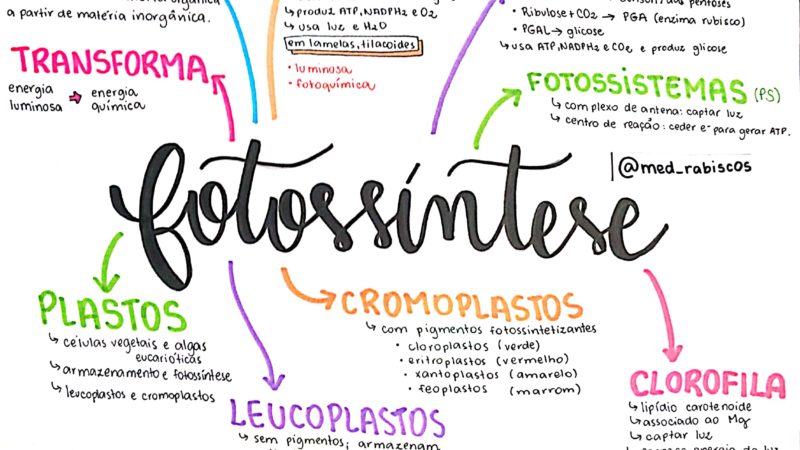 a partir de matéria inorgânica.
TRANSFORMA
energia luminosa → energia química
↳ produz ATP, NADPH2 e O2
↳ usa luz e H2O
em lamelas, tilacoides
• luminosa
• fotoquímica
• Ribulose + CO2 → PGA (enzima rubisco)
• PGAL → glicose
↳ usa ATP, NADPH2 e CO2 e produz glicose
FOTOSSISTEMAS (PS)
↳ complexo de antena: captar luz
↳ centro de reação: ceder e⁻ para gerar ATP.
@med_rabiscos
fotossíntese
PLASTOS
↳ células vegetais e algas
eucarióticas
↳ armazenamento e fotossíntese
↳ leucoplastos e cromoplastos
LEUCOPLASTOS
↳ sem pigmentos; armazenam
CROMOPLASTOS
↳ com pigmentos fotossintetizantes
• cloroplastos (verde)
• eritroplastos (vermelho)
• xantoplastos (amarelo)
• feoplastos (marrom)
CLOROFILA
↳ lipídio carotenoide
↳ associado ao Mg
↳ captar luz